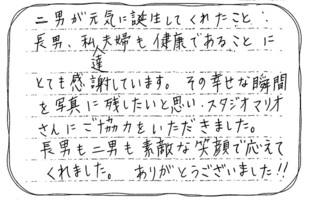 二男が元気に誕生してくれたこと、
長男、私達夫婦も健康であることに
とても感謝しています。その幸せな瞬間
を写真に残したいと思い、スタジオマリオ
さんにご協力をいただきました。
長男も二男も素敵な笑顔で応えて
くれました。ありがとうございました!!